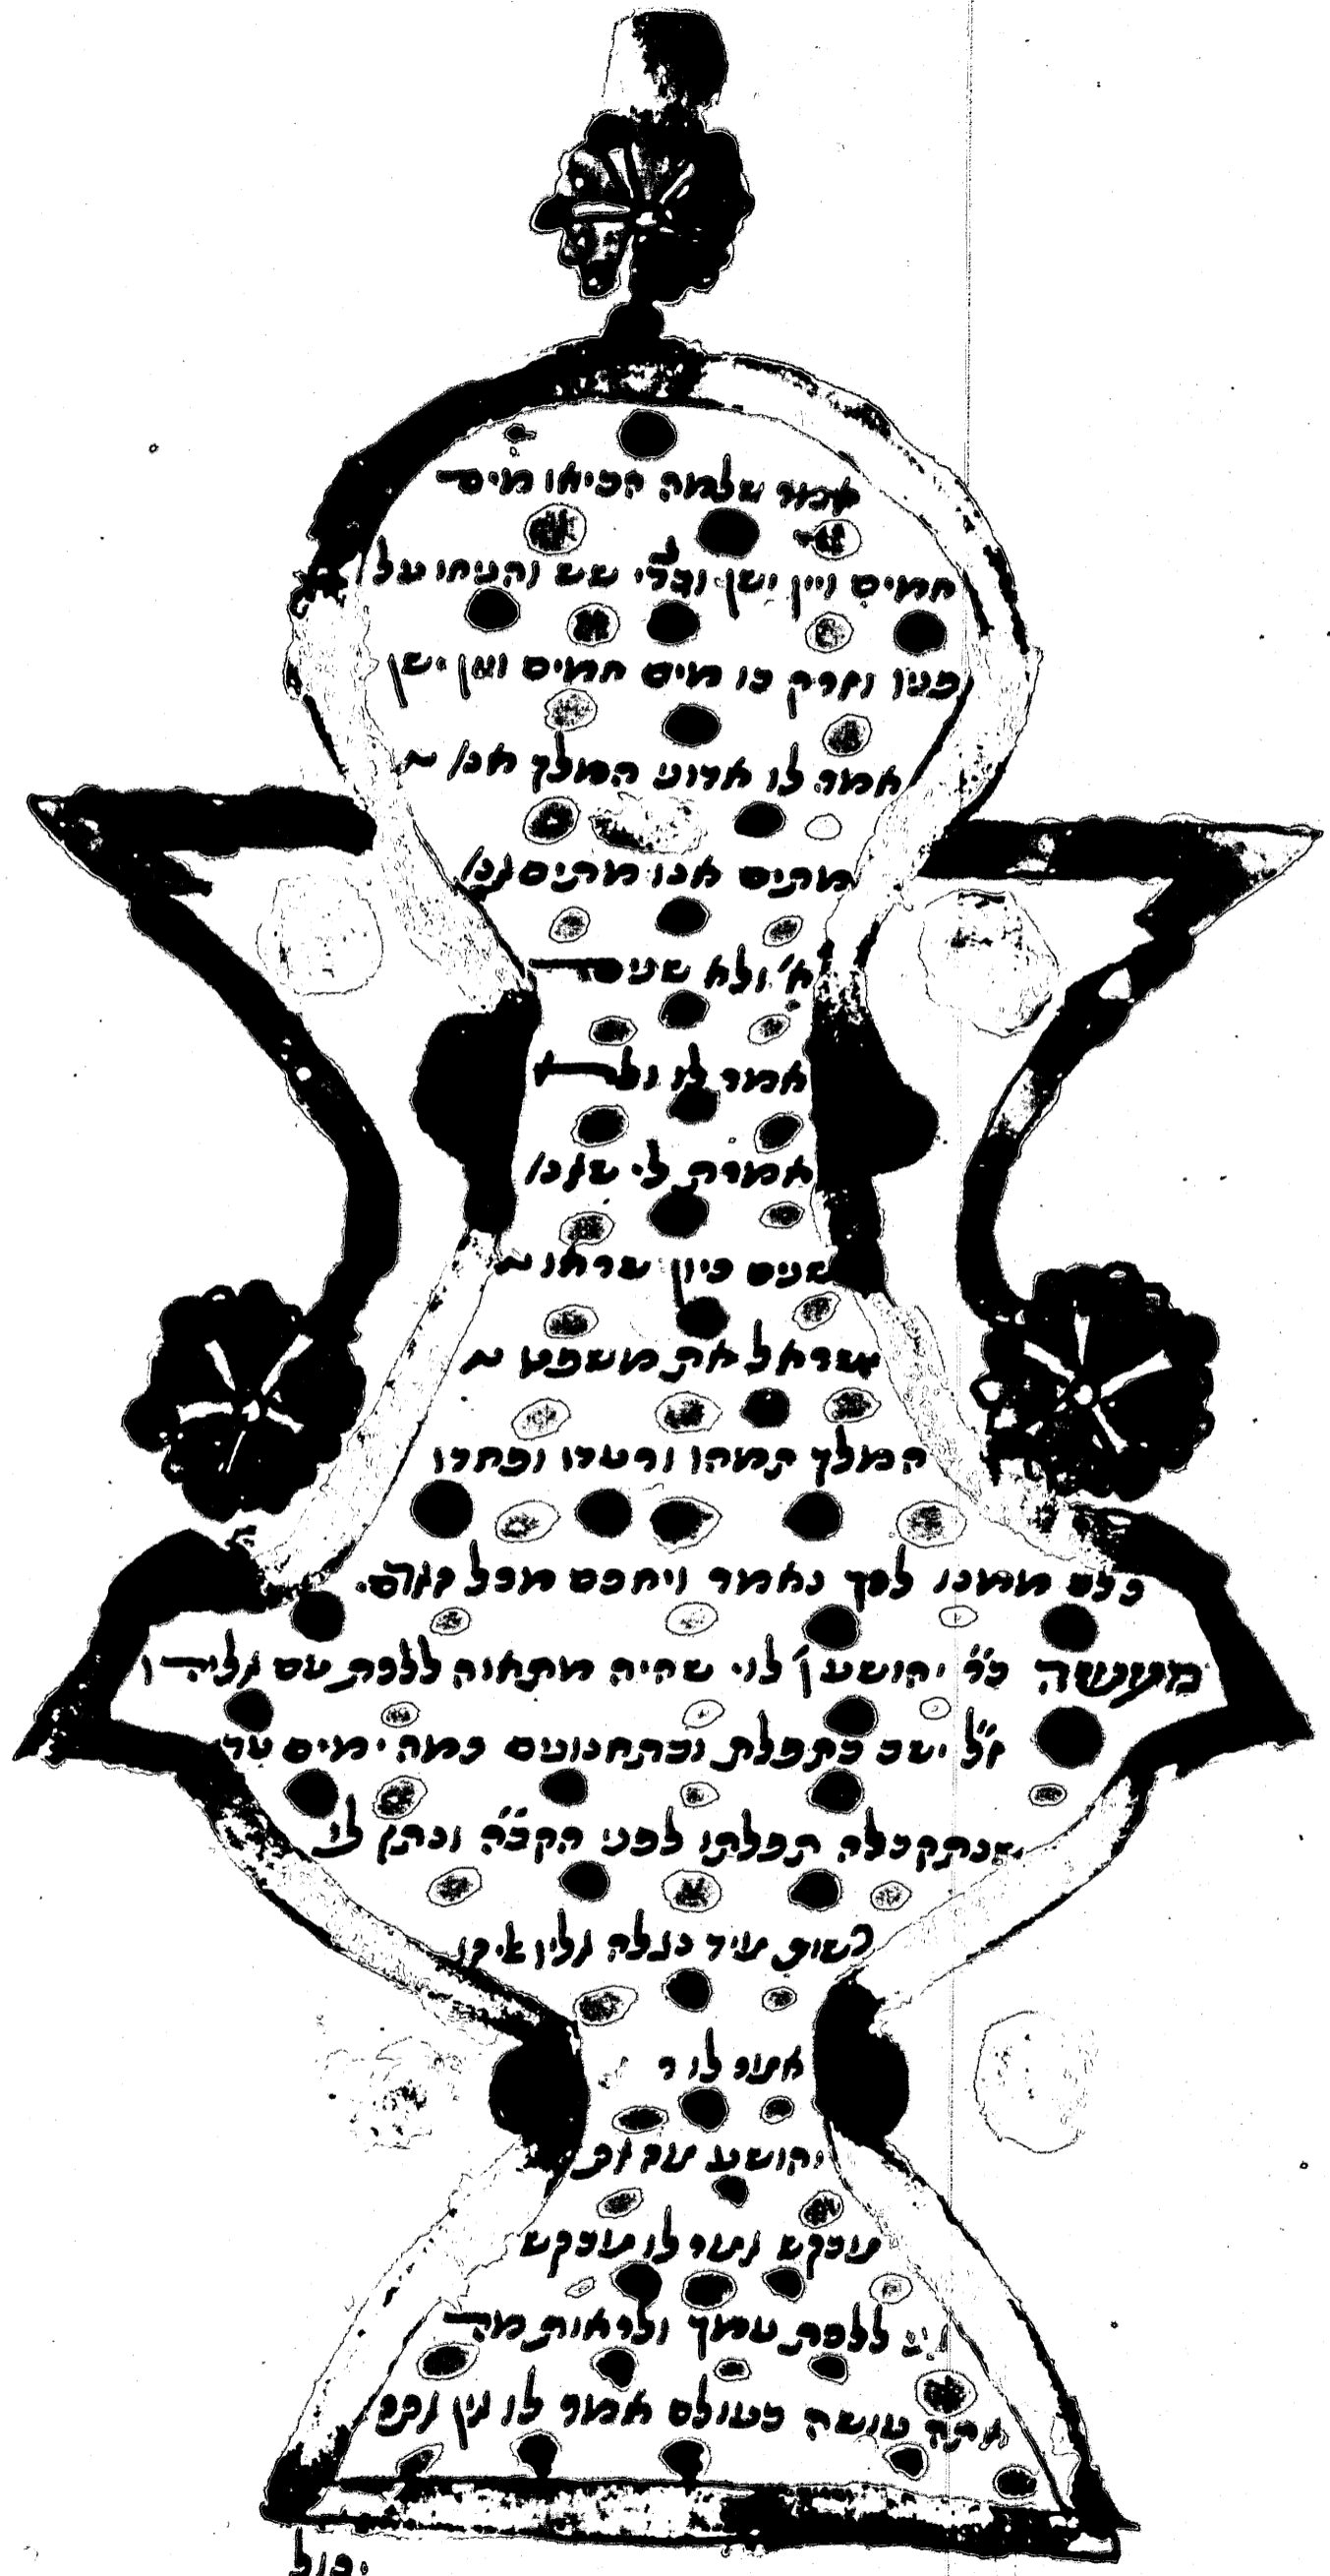 אמר שלמה הביאו מים
חמים ויין ישן ובדי שש והניחו על
פניו וזרק בו מים חמים ויין ישן
אמר לו אדוני המלך אנו
מתים אנו מתים אני
א' ולא שנים
אמר לו ולא
אמרת לי שאני
שנים כיון שראו
ישראל את משפט
המלך תמהו ורעדו ופחדו
כלם ממנו לכך נאמר ויחכם מכל האדם.
מעשה בר' יהושע ן' לוי שהיה מתאוה ללכת עם אליהו
ז"ל ישב בתפלת ובתחנונים כמה ימים עד
שנתקבלה תפלתו לפני הקב"ה ונתן לו
רשות מיד נגלה אליו אליהו
אמר לו ר
יהושע מה את
מבקש אמר לו מבקש
אני ללכת עמך ולראות מה
אתה עושה בעולם אמר לו אין אתה
יכול